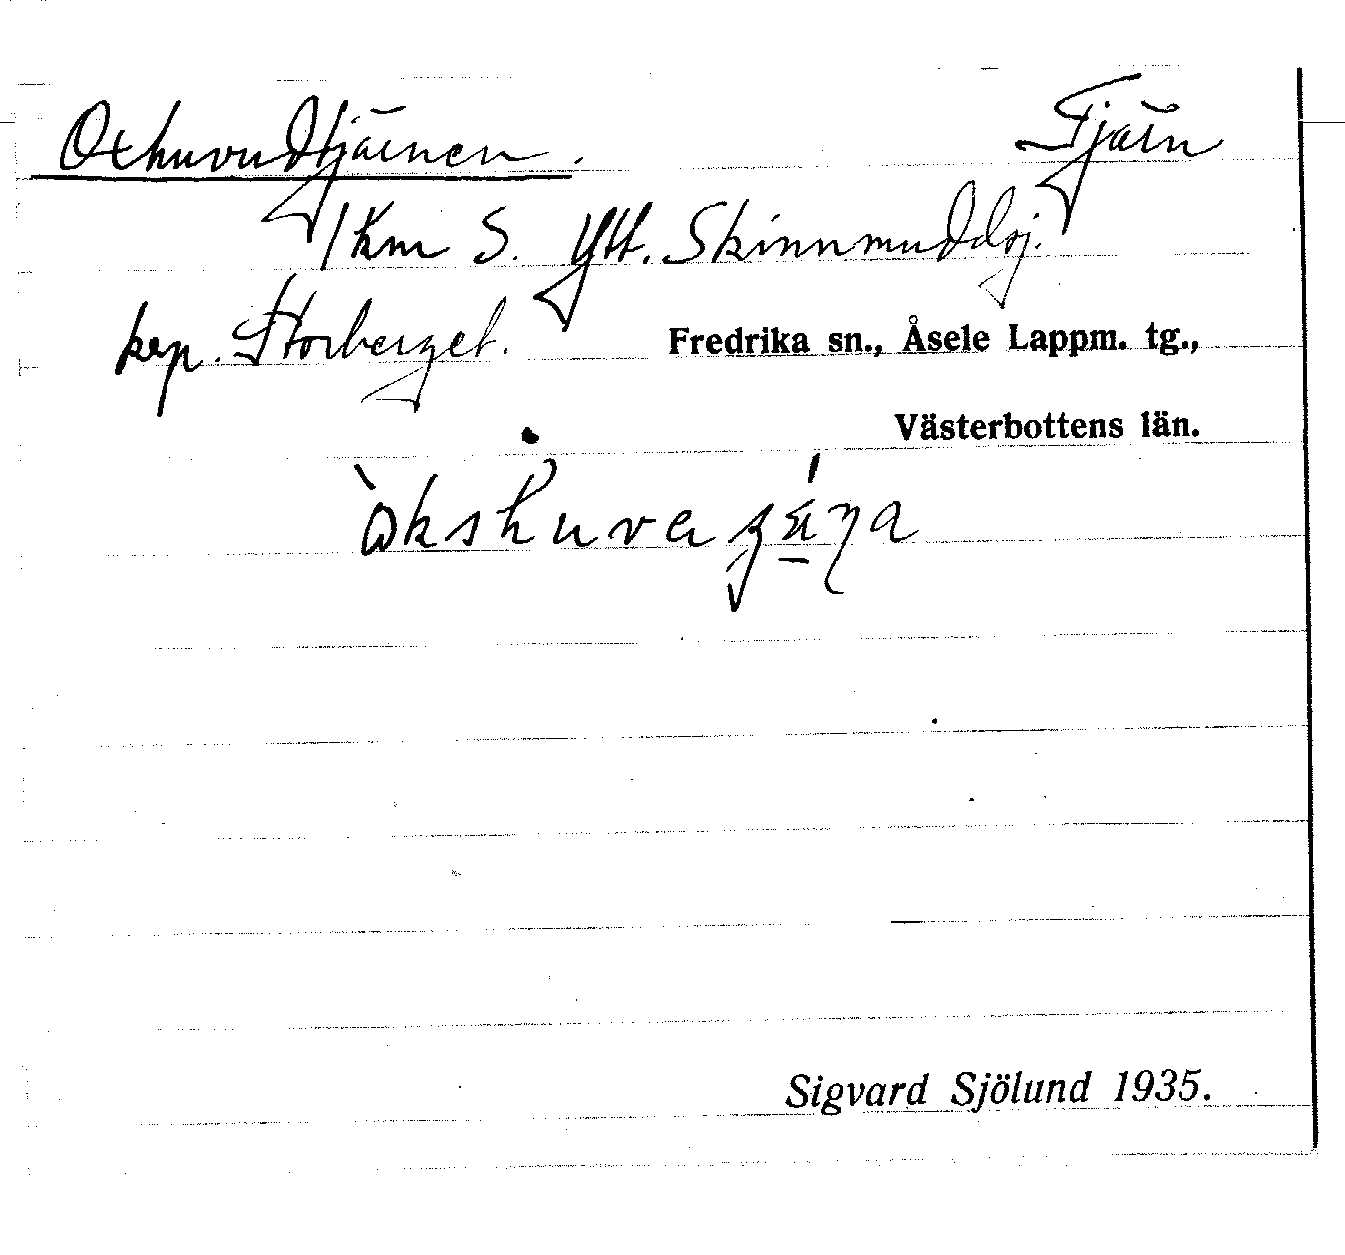 Oxhuvudtjärnen. Tjärn
1 km S. Ytt. Skinnmuddsj.
krp. Storberget. Fredrika sn., Åsele Lappm. tg.,
Västerbottens län.
Sigvard Sjölund 1935.